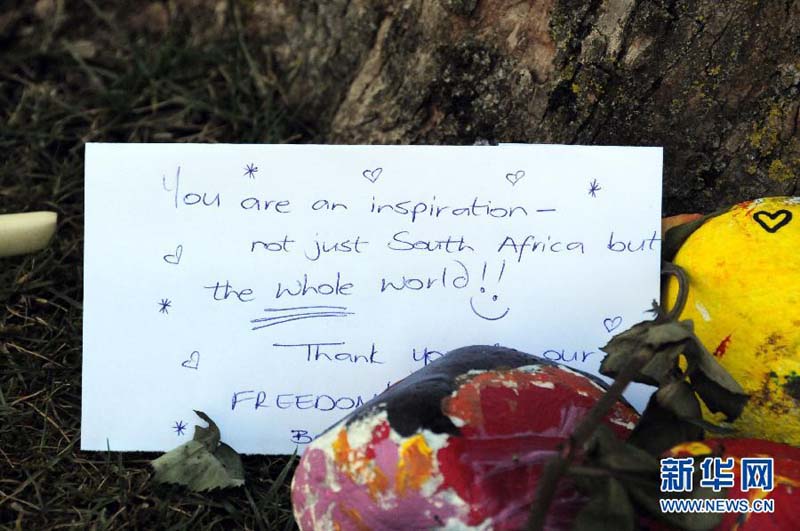 You are an inspiration –
not just South Africa but
the whole world!!
Thank our
FREEDOM
新华网
WWW.NEWS.CN